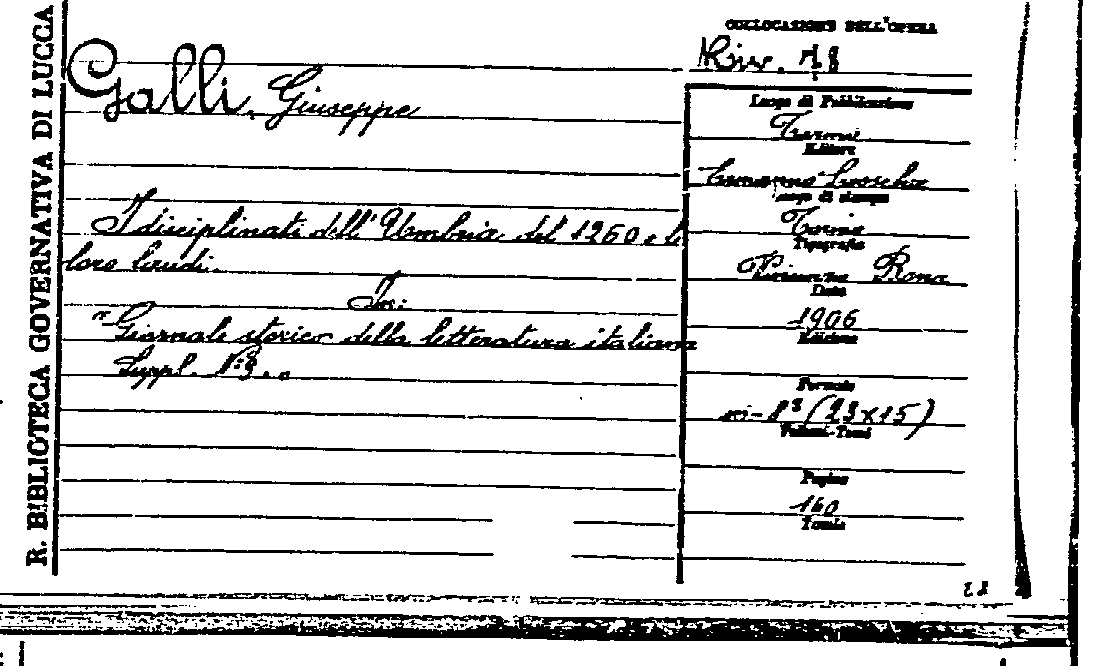 R. BIBLIOTECA GOVERNATIVA DI LUCCA
Galli, Giuseppe
I disciplinati dell'Umbria del 1260 e le
loro laudi.
In:
"Giornale storico della letteratura italiana
Suppl. N° 9."
COLLOCAZIONE DELL'OPERA
Riv. 18
Luogo di Pubblicazione
Torino
Editore
Ermanno Loescher
Luogo di stampa
Torino
Tipografia
Vincenzo Bona
Data
1906
Edizione
Formato
in-8° (23x15)
Volumi-Tomi
Pagine
160